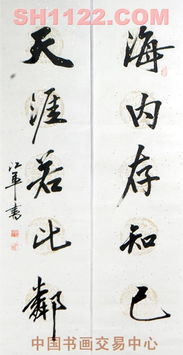 SH1122.COM
海内存知己
天涯若比鄰
江军书
中国书画交易中心